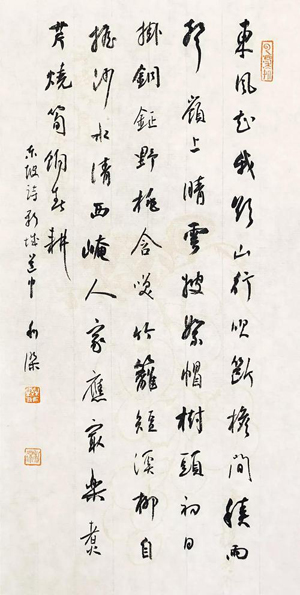 東風知我欲山行吹斷檐間積雨
聲嶺上晴雲披絮帽樹頭初日
掛銅鉦野桃含笑竹籬短溪柳自
搖沙水清西崦人家應最樂煮
芹燒筍餉春耕
东坡詩新城道中